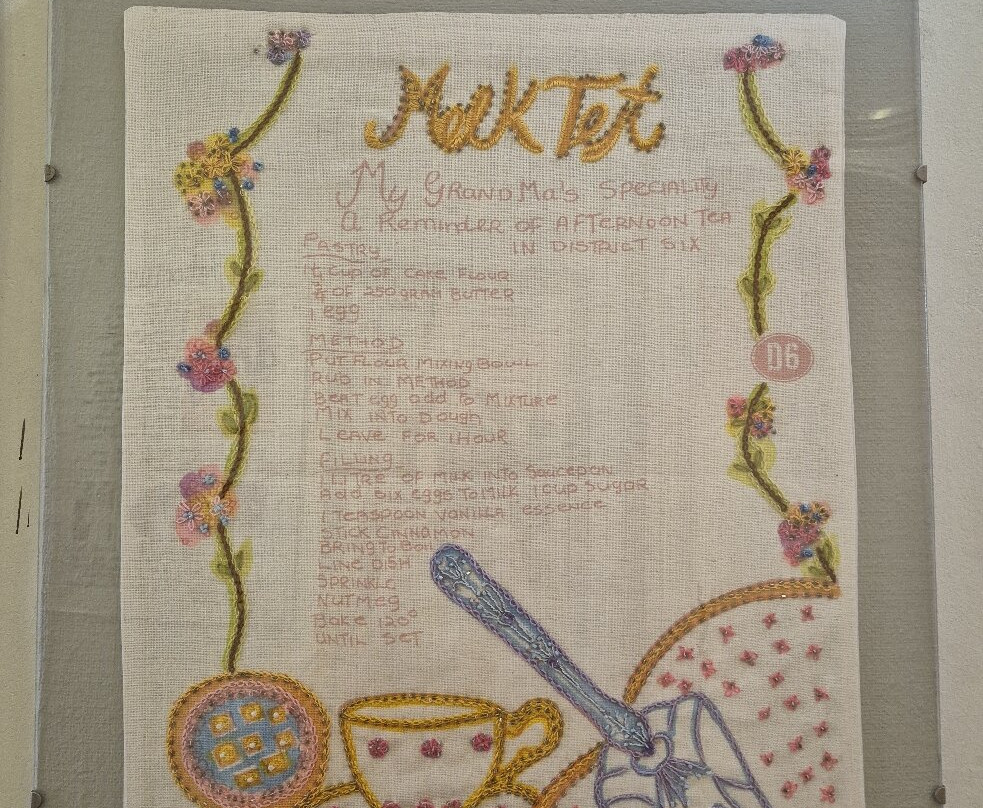 Melk Tert
My GRANDMa's SPECIALITY
A Reminder OF AFTERNOON Tea
IN DISTRICT SIX
PASTRY
CUP OF CAKE FLOUR
OF 250 GRAM BUTTER
1 egg
METHOD
PUT FLOUR MIXING BOWL
RUB IN METHOD
Beat egg add to MIXTURE
MIX INTO DOUGH
LEAVE FOR 1 HOUR
FILLING
1 LITRE OF MILK INTO Saucepan
Add SIX eggs TO MILK 1 CUP SUGAR
1 TEASPOON VANILLA essence
STICK CINNAMON
BRING TO BOIL
LINE DISH
SPRINKLE
NUTMEG
Bake 120°
UNTIL SET
D6